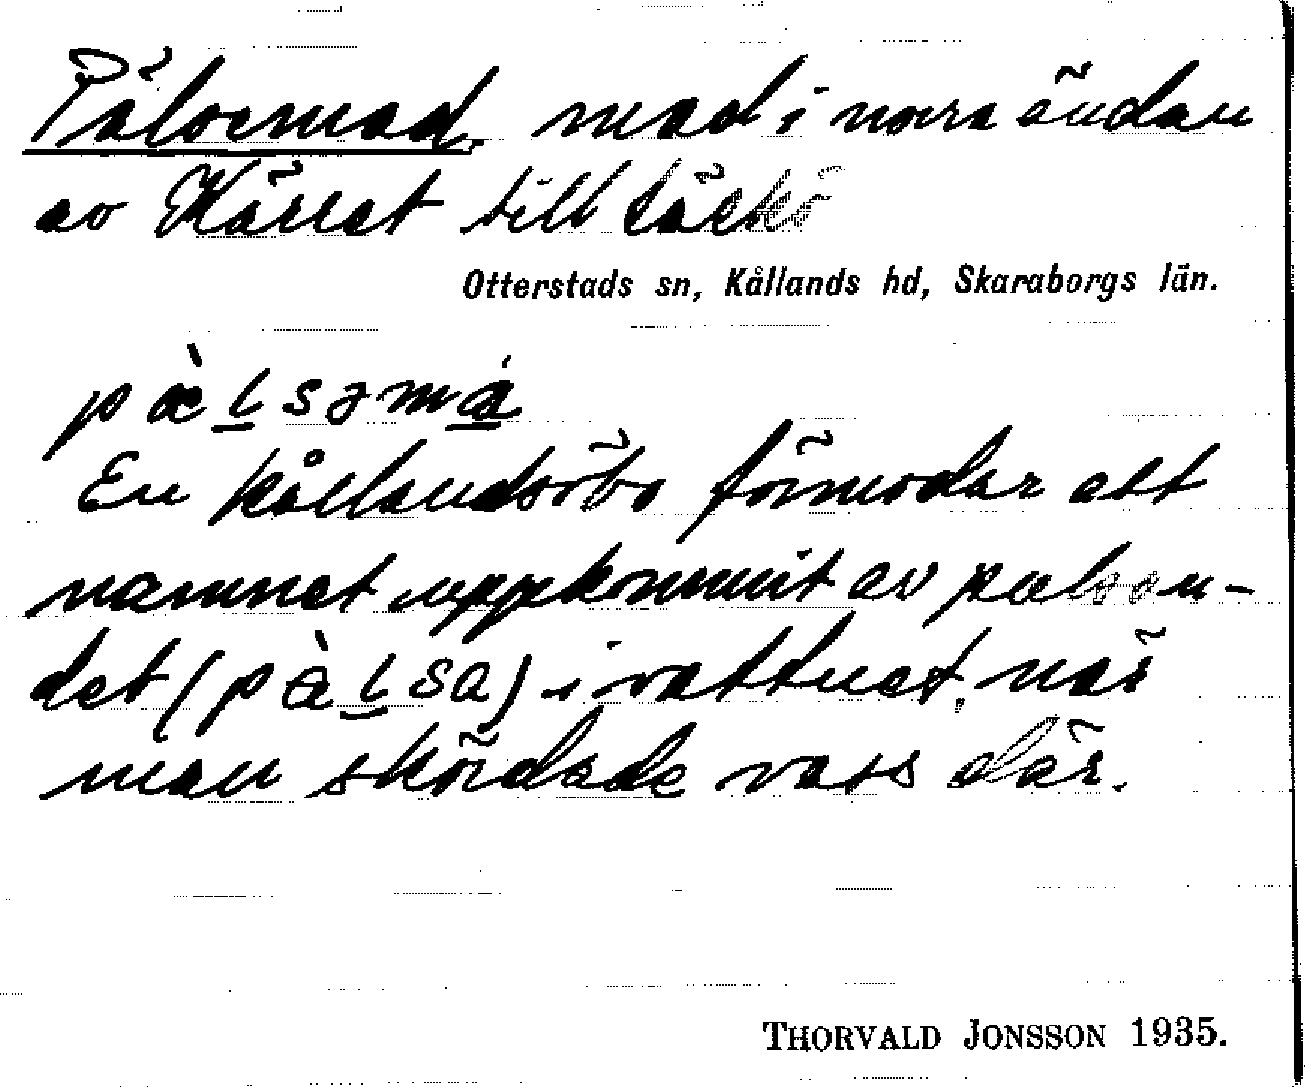 Pälsemad, mad i norra ändan
av Kärret till Läckö
Otterstads sn, Kållands hd, Skaraborgs län.
pæ̀lsəmá
En kållandsöbo förmodar att
namnet uppkommit av pælsan-
det (pæ̀lsa) i vattnet, när
man skördade vass där.
THORVALD JONSSON 1935.